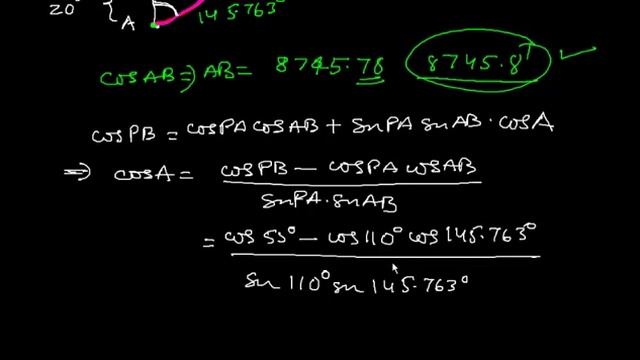 20° { A 145.763°
cosAB ⇒ AB = 8745.78 8745.8' ✓
cosPB = cosPA cosAB + sinPA sinAB · cosA
⇒ cosA = cosPB − cosPA cosAB
sinPA · sinAB
= cos 55° − cos 110° cos 145.763°
sin 110° sin 145.763°